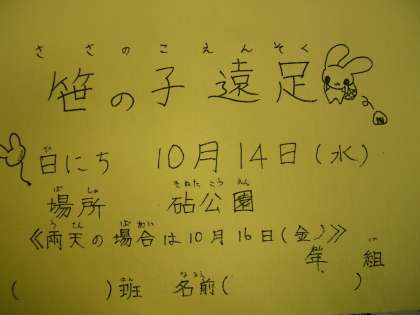 ささのこえんそく
笹の子遠足
ひ
日にち 10月14日(水)
ばしょ きぬたこうえん
場所 砧公園
うてん ばあい
《雨天の場合は10月16日(金)》
年 組
はん なまえ
( )班 名前( )